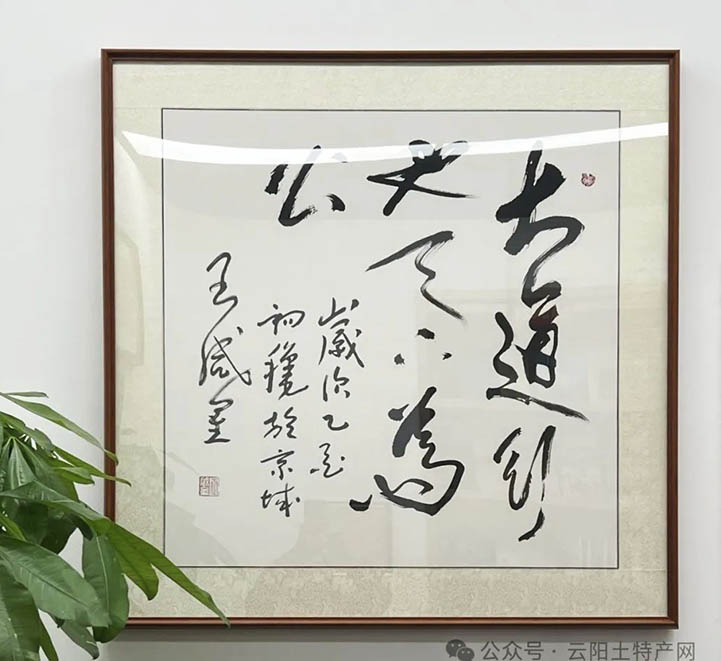 大道行
也天下為
公
歲次乙
初穐於京城
王
公众号·云阳土特产网